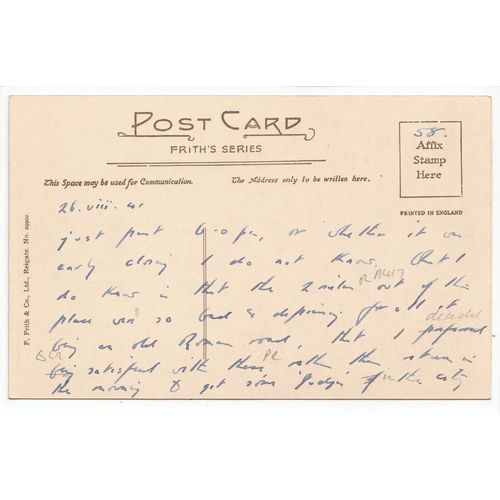 POST CARD
FRITH'S SERIES
58.
Affix
Stamp
Here
This Space may be used for Communication.
The Address only to be written here.
PRINTED IN ENGLAND
F. Frith & Co., Ltd., Reigate. No.
26.viii.
just past 6-0 pm, or whether it was
early closing I do not know. But I
do know is that the 2 miles out of this
place was so bad & depressing for all it
decided
being an old Roman road, that I preferred
being satisfied with these, with then return in
the morning & get some in the city